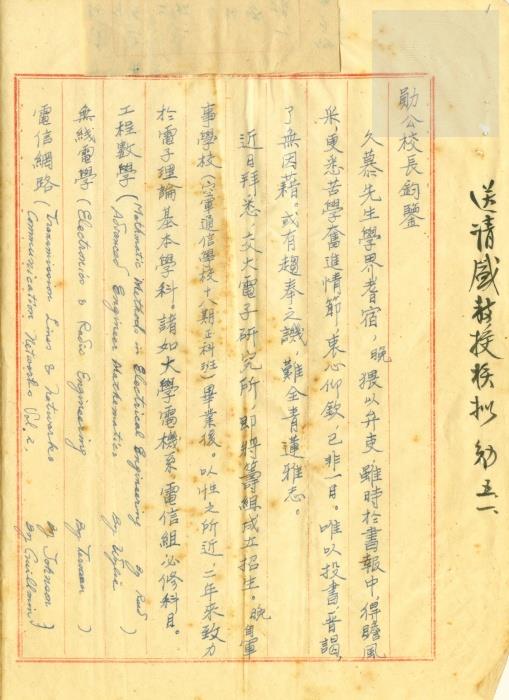 送請盛教授核拟 幼 五一
勛公校長鈞鑒
久慕先生學界耆宿，晚猥以弁吏，雖時於書報中，得瞻風
采，更悉苦學奮進情節，衷心仰欽，已非一日。唯以投書，晉謁，
了無因藉。或有趨奉之譏，難全青蓮雅志。
近日拜悉 交大電子研究所，即將籌組成立招生。晚自軍
事學校（空軍通信學校十八期正科班）畢業後。以性之所近，二年來致力
於電子理論基本學科。諸如大學電機系，電信組必修科目。
工程數學（Mathematic Methods in Electrical Engineering By Reed
Advanced Engineer Mathematics By Wylie ）
無线電學（Electronics & Radio Engineering By Terman ）
電信網路（Transmission Lines & Networks By Johnson
Communication Networks Vol. 2, By Guillemin ）
1